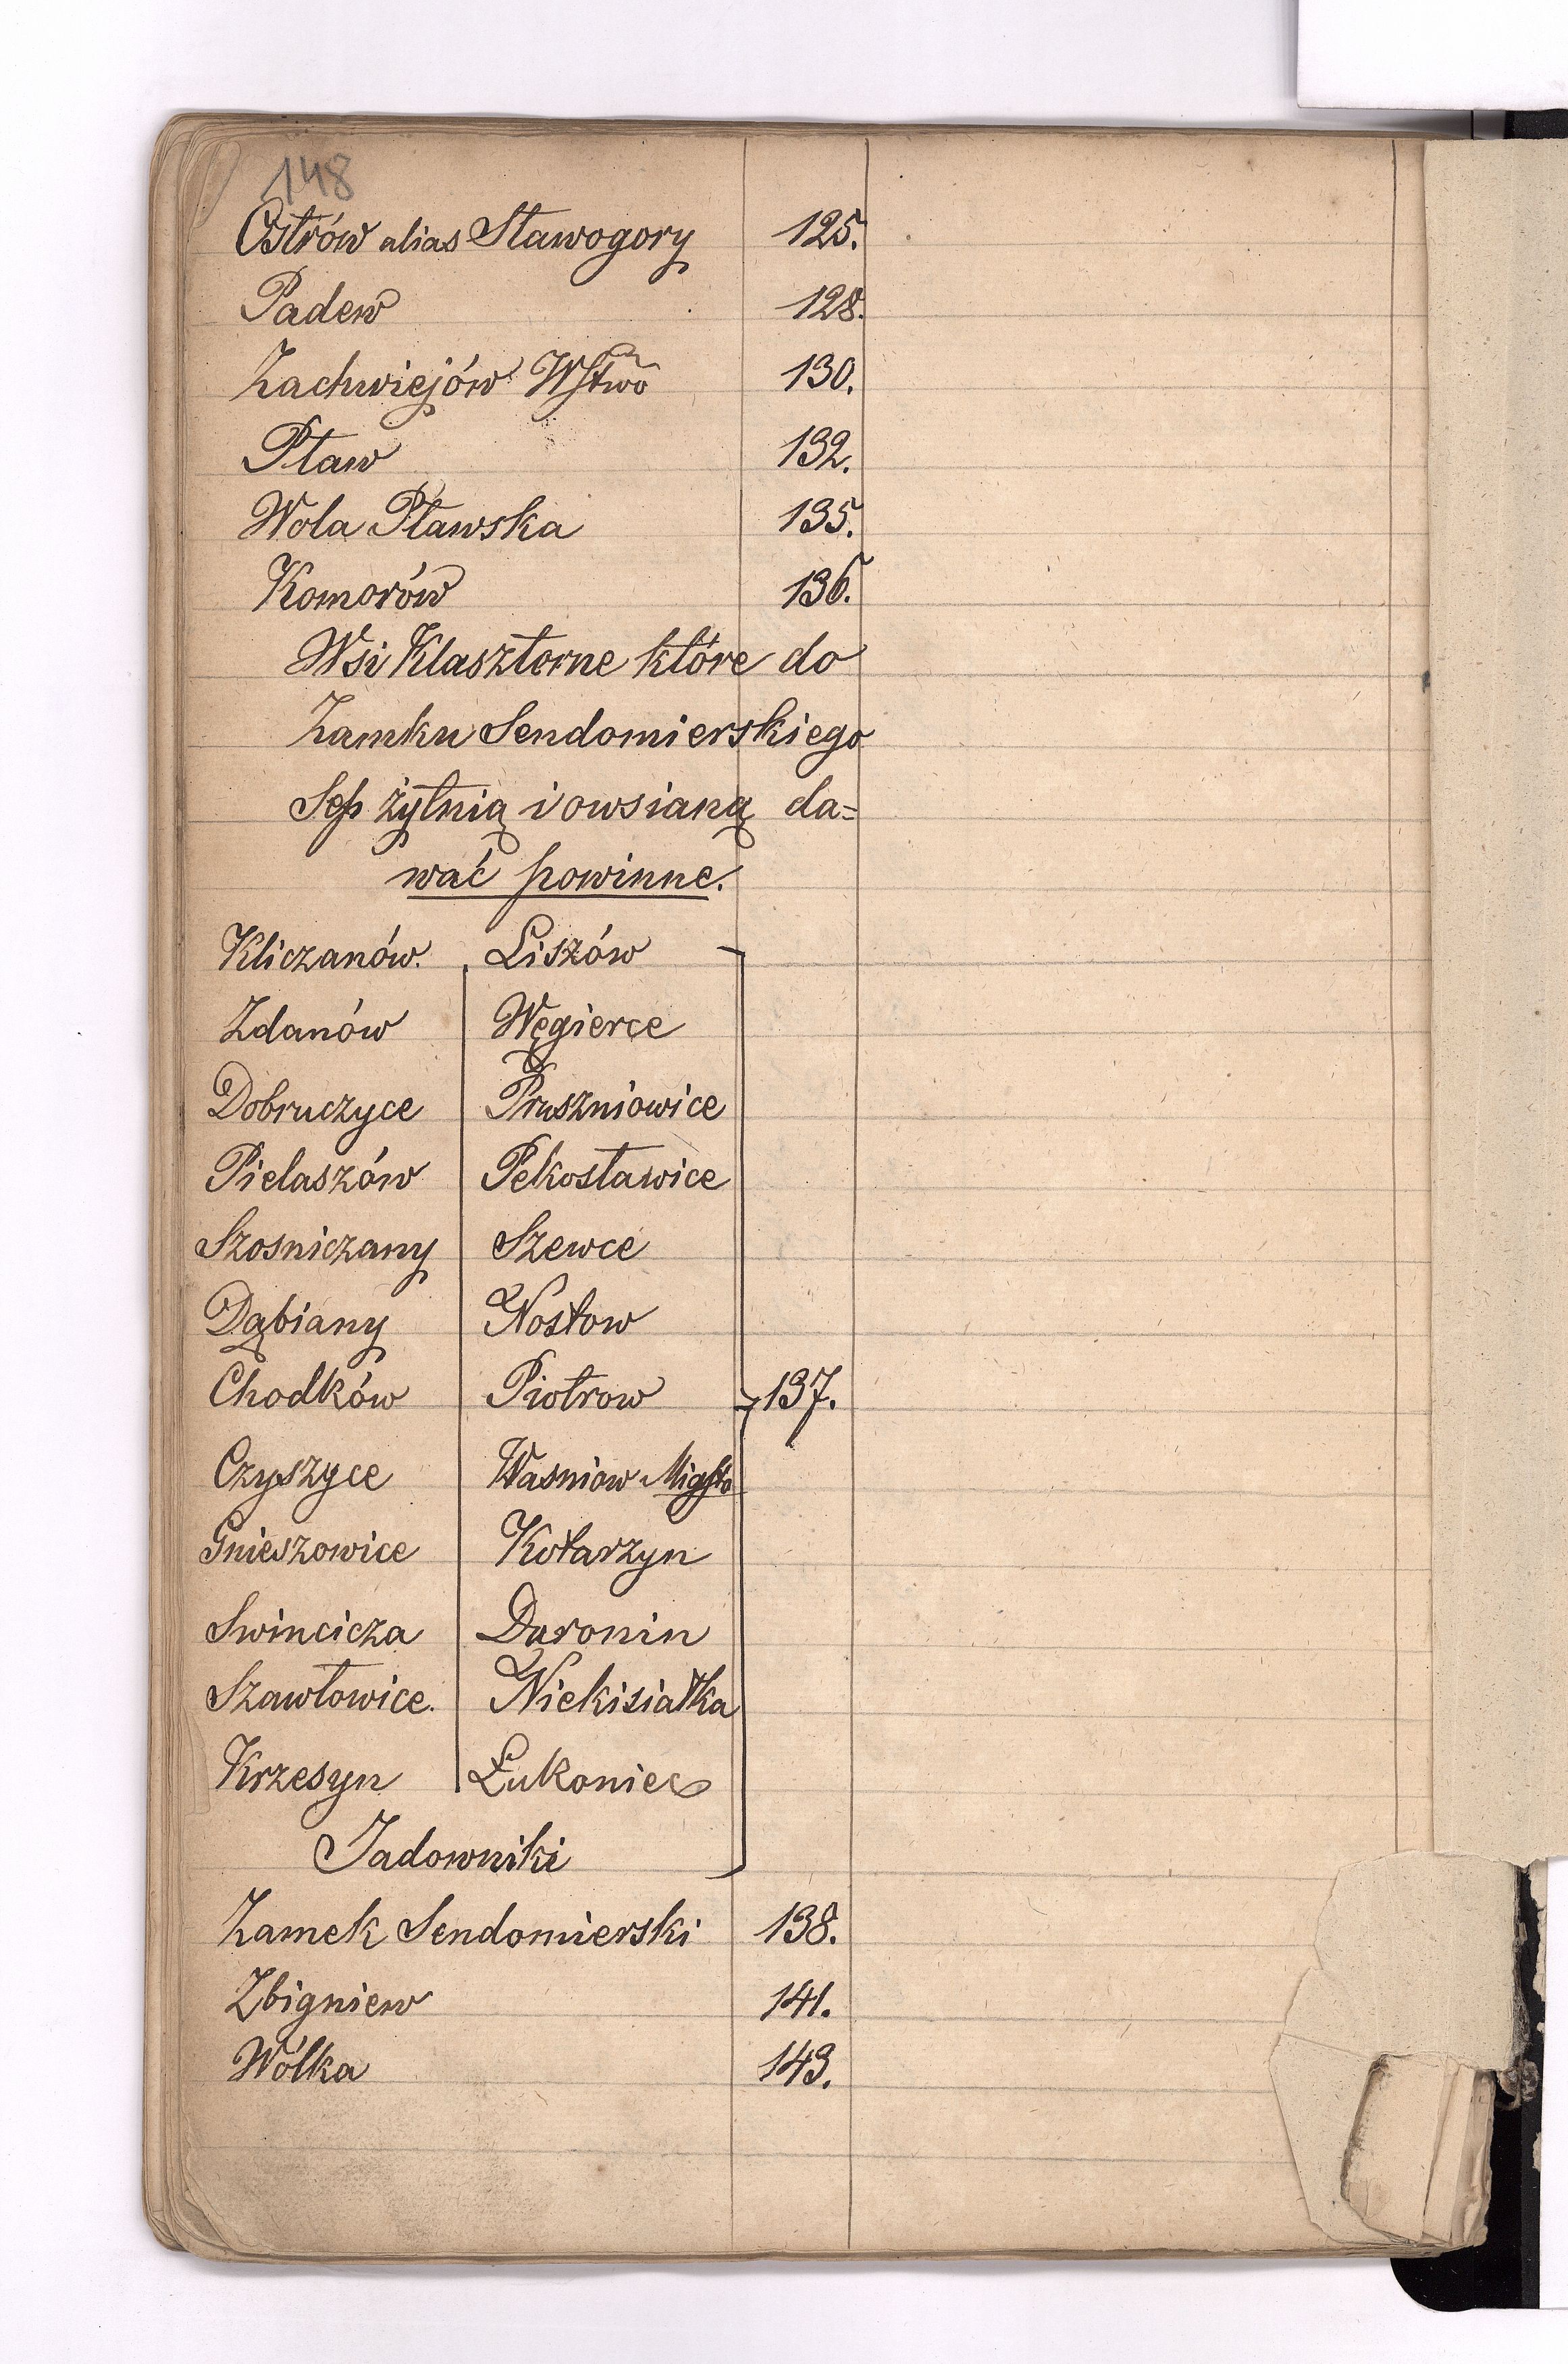 148
Ostrów alias Stawogory 125.
Padew 128.
Zachwiejów Wstwo 130.
Pław 132.
Wola Pławska 135.
Komorów 136.
Wsi Klasztorne które do
Zamku Sendomierskiego
Sep żytnią i owsianą da=
wać powinne.
Kliczanów. Liszów
Zdanów Węgierce
Dobruczyce Pruszniowice
Pielaszów Pekosławice
Szosniczany Szewce
Dąbiany Nosłow
Chodków Piotrow 137.
Czyszyce Wasniow Miasto
Gnieszowice Kotarzyn
Swincicza Duronin
Szawłowice. Niekisiałka
Krzesyn Łukoniec
Jadowniki
Zamek Sendomierski 138.
Zbigniew 141.
Wólka 143.